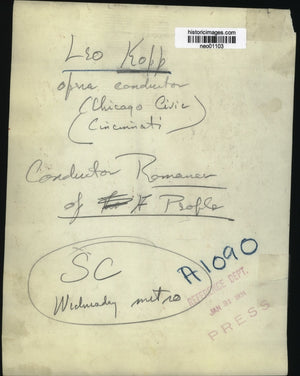 historicimages.com
neo01103
Leo Kopp
opera conductor
(Chicago Civic
(Cincinnati
Conductor Romance
of People
SC
Wednesday metro
A1090
REFERENCE DEPT.
PRESS